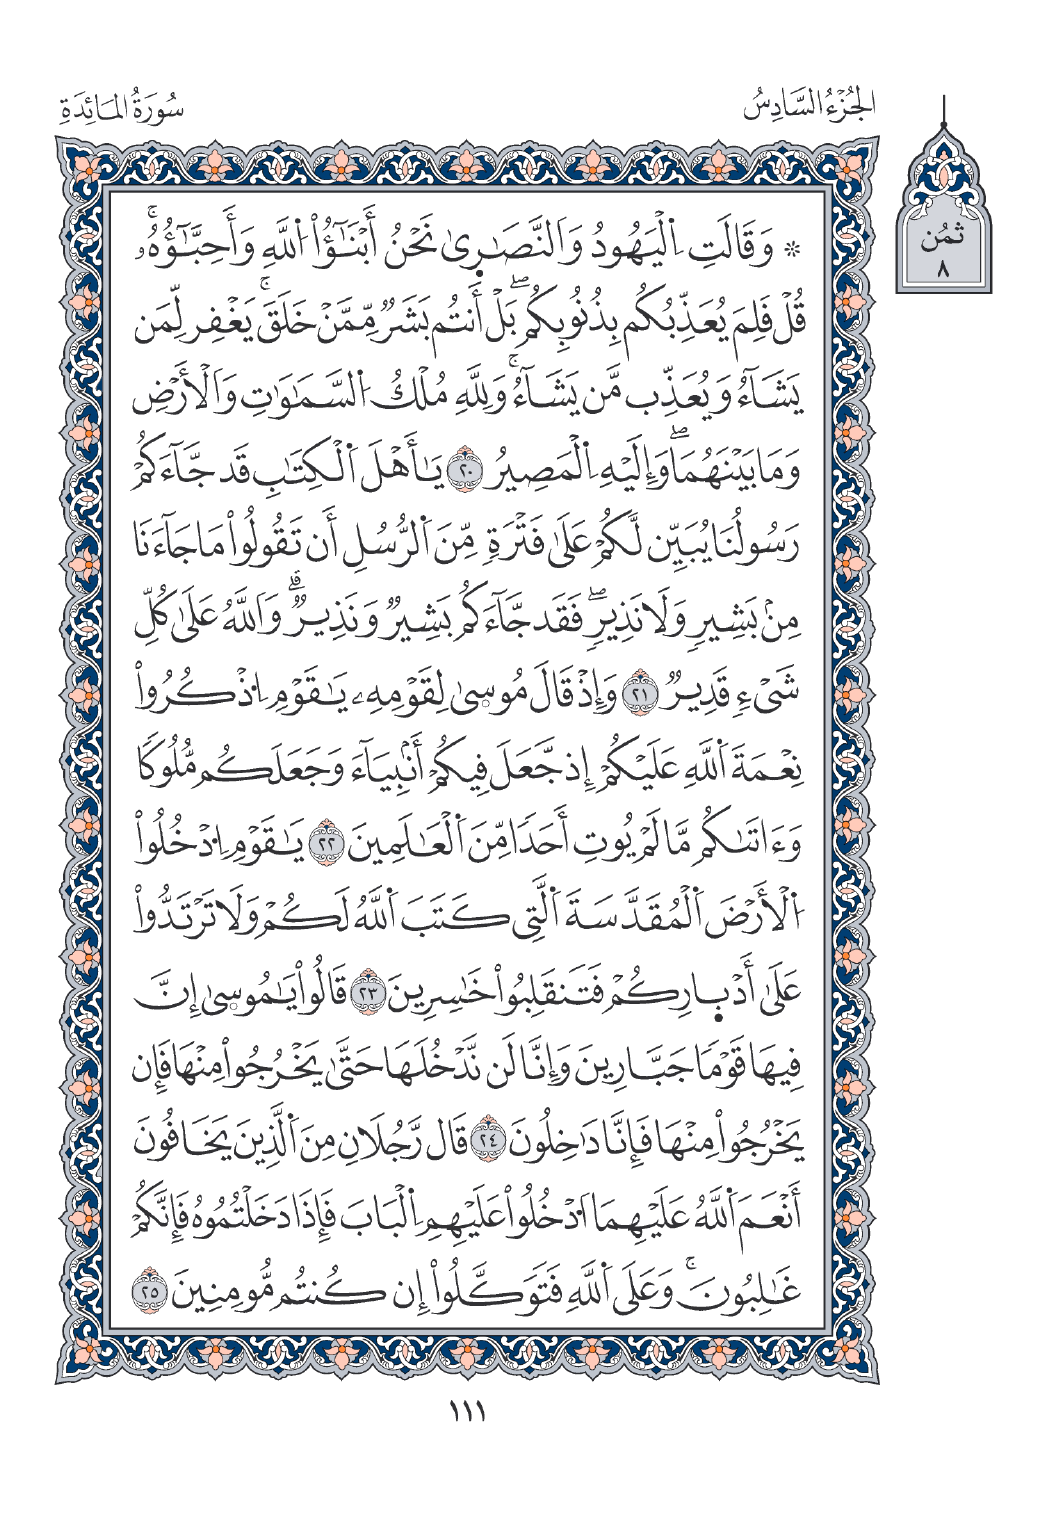 الجُزْءُ السَّادِسُ
سُورَةُ المَائِدَةِ
ثُمُن
٨
۞ وَقَالَتِ اِ۬لْيَهُودُ وَالنَّصَٰر۪ىٰ نَحْنُ أَبْنَٰٓؤُاْ اُ۬للَّهِ وَأَحِبَّٰٓؤُهُۥۚ
قُلْ فَلِمَ يُعَذِّبُكُم بِذُنُوبِكُمۖ بَلْ أَنتُم بَشَرٌ مِّمَّنْ خَلَقَۚ يَغْفِر لِّمَن
يَشَآءُ وَيُعَذِّب مَّن يَشَآءُۚ وَلِلَّهِ مُلْكُ اُ۬لسَّمَٰوَٰتِ وَالْأَرْضِ
وَمَا بَيْنَهُمَاۖ وَإِلَيْهِ اِ۬لْمَصِيرُ ٢٠ يَٰأَهْلَ اَ۬لْكِتَٰبِ قَد جَّآءَكُمْ
رَسُولُنَا يُبَيِّن لَّكُمْ عَلَىٰ فَتْرَةٍ مِّنَ اَ۬لرُّسُلِ أَن تَقُولُواْ مَا جَآءَنَا
مِنۢ بَشِيرٍ وَلَا نَذِيرٍۖ فَقَد جَّآءَكُم بَشِيرٌ وَنَذِيرٌۗ وَاللَّهُ عَلَىٰ كُلِّ
شَيْءٍ قَدِيرٌ ٢١ وَإِذْ قَالَ مُوس۪ىٰ لِقَوْمِهِۦ يَٰقَوْمِ اِ۟ذْكُرُواْ
نِعْمَةَ اَ۬للَّهِ عَلَيْكُمْ إِذ جَّعَلَ فِيكُمْ أَنۢبِيَآءَ وَجَعَلَكُم مُّلُوكًا
وَءَاتَىٰكُم مَّا لَمْ يُوتِ أَحَدًا مِّنَ اَ۬لْعَٰلَمِينَ ٢٢ يَٰقَوْمِ اِ۟دْخُلُواْ
اُ۬لْأَرْضَ اَ۬لْمُقَدَّسَةَ اَ۬لَّتِي كَتَبَ اَ۬للَّهُ لَكُمْ وَلَا تَرْتَدُّواْ
عَلَىٰ أَدْبٰ۪رِكُمْ فَتَنقَلِبُواْ خَٰسِرِينَ ٢٣ قَالُواْ يَٰمُوس۪ىٰ إِنَّ
فِيهَا قَوْمًا جَبَّارِينَ وَإِنَّا لَن نَّدْخُلَهَا حَتَّىٰ يَخْرُجُواْ مِنْهَا فَإِن
يَخْرُجُواْ مِنْهَا فَإِنَّا دَٰخِلُونَ ٢٤ قَال رَّجُلَانِ مِنَ اَ۬لَّذِينَ يَخَافُونَ
أَنْعَمَ اَ۬للَّهُ عَلَيْهِمَا اَ۟دْخُلُواْ عَلَيْهِمِ اِ۬لْبَابَ فَإِذَا دَخَلْتُمُوهُ فَإِنَّكُمْ
غَٰلِبُونَۚ وَعَلَى اَ۬للَّهِ فَتَوَكَّلُواْ إِن كُنتُم مُّومِنِينَ ٢٥
١١١